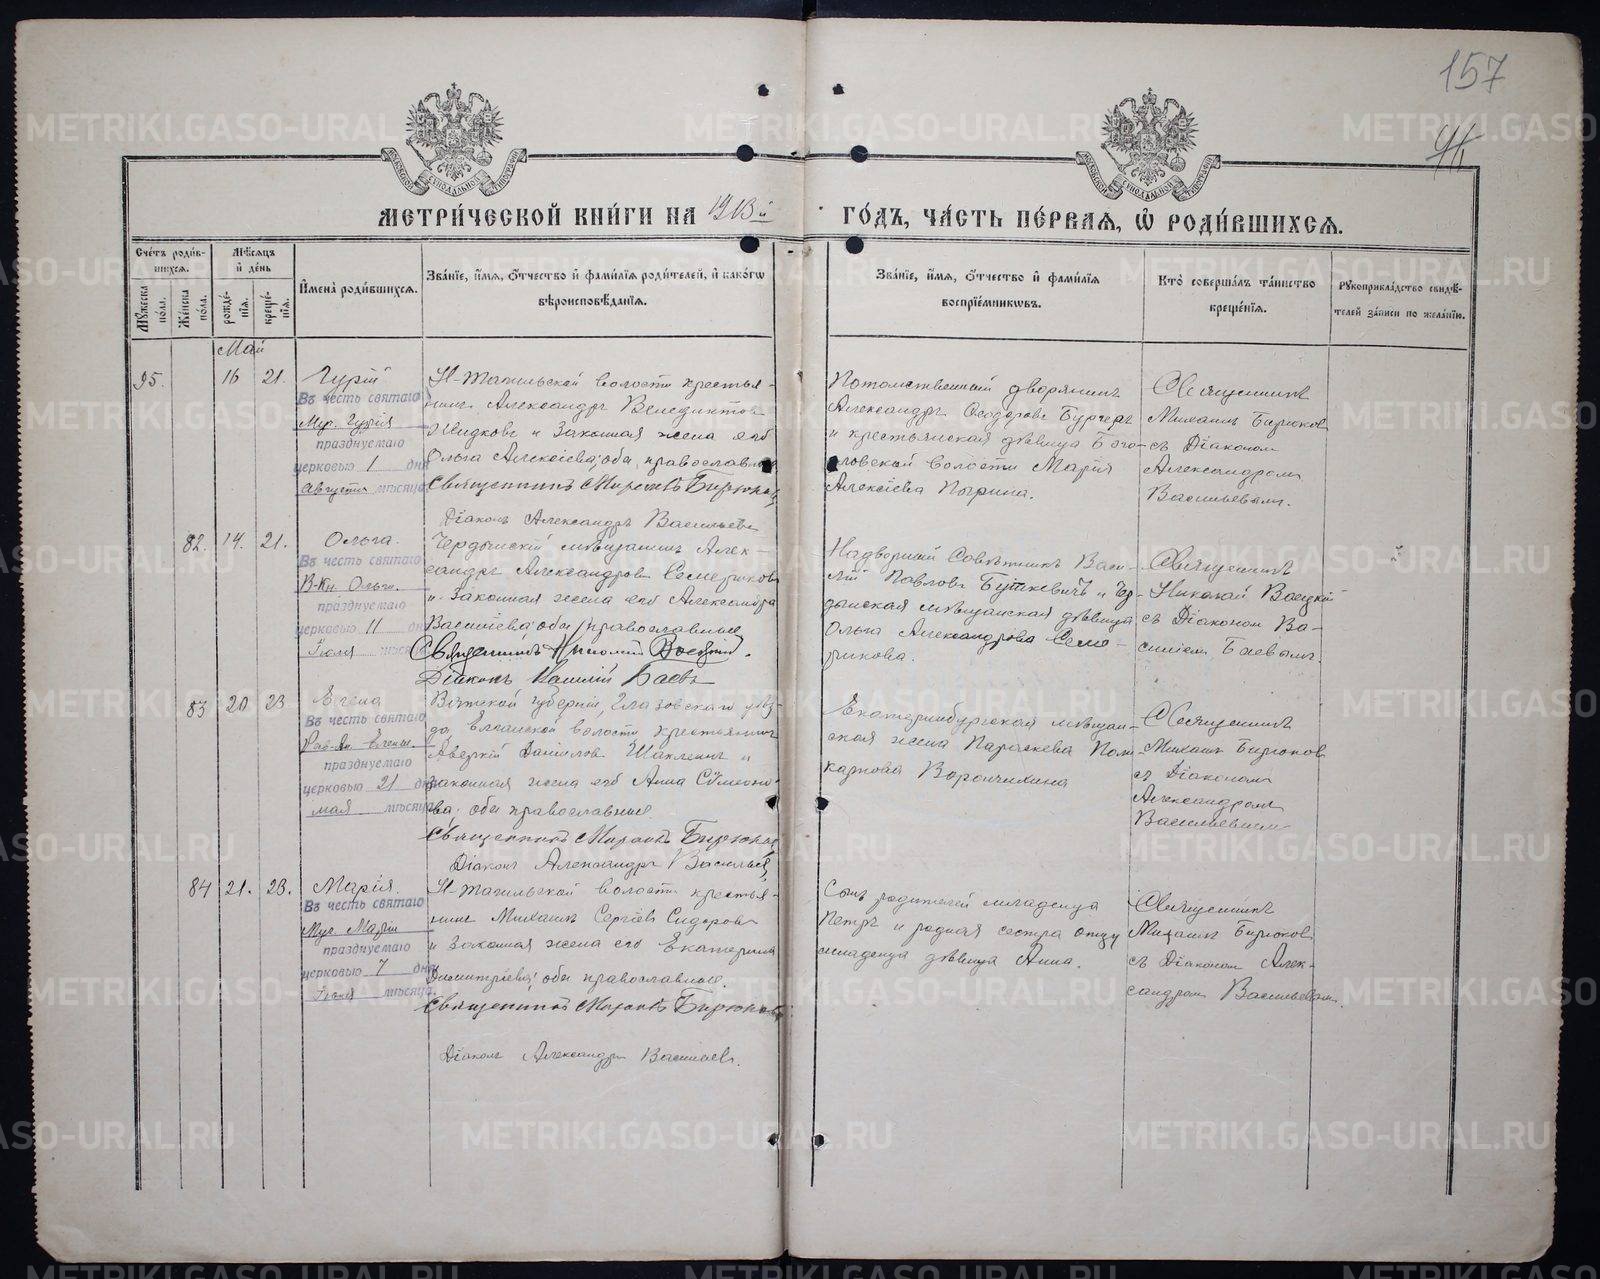 157
МЕТРИ́ЧЕСКОЙ КНИ́ГИ НА 1913й ГО́ДЪ, ЧА́СТЬ ПЕ́РВАЯ, Ѽ РОДИ́ВШИХСЯ.
Сче́тъ роди́в-
шихся.
Му́жеска по́ла.
Же́нска по́ла.
Мѣ́сяцъ и де́нь
рожде́-
нія.
креще́-
нія.
Имена̀ роди́вшихся.
Зва́ніе, и́мя, ѻ́тчество и фами́лія роди́телей, и како́гѡ
вѣроисповѣ́данія.
Зва́ніе, и́мя, ѻ́тчество и фами́лія
воспріе́мникѡвъ.
Кто̀ соверша́лъ та́инство
креще́нія.
Рукоприкла́дство свидѣ́-
телей за́писи по жела́нію.
Май
95. 16 21. Гурій
Въ честь святаго
Муч. Гурія
празднуемаго
церковью 1 дня
Августа мѣсяца
Н-Тагильской волости крестья-
нинъ Александръ Венедиктовъ
Жидковъ и законная жена его
Ольга Алексіева; оба православные
Священникъ Михаилъ Бирюковъ
Діаконъ Александръ Васильевъ
Потомственный дворянинъ
Александръ Ѳеодоровъ Бурчеръ
и крестьянская дѣвица Бого-
словской волости Марія
Алексіева
Священникъ
Михаилъ Бирюковъ
съ Діакономъ
Александромъ
Васильевымъ.
82. 14. 21. Ольга.
Въ честь святаго
В. Кн. Ольги.
празднуемаго
церковью 11 дня
Іюля мѣсяца
Чердынскій мѣщанинъ Алек-
сандръ Александровъ Семериковъ
и законная жена его Александра
Василіева; оба православные
Священникъ Николай Воецкій.
Діаконъ Василій Баевъ
Надворный Совѣтникъ Васи-
лій Павловъ Буткевичъ и Чер-
дынская мѣщанская дѣвица
Ольга Александрова Семе-
рикова.
Священникъ
Николай Воецкій
съ Діакономъ Ва-
силіемъ Баевымъ.
83 20 23 Елена
Въ честь святаго
Рав-Ап. Елены.
празднуемаго
церковью 21 дня
мая мѣсяца
Вятской губерніи, Глазовскаго уѣз-
да, Елганской волости крестьянинъ
Аверкій Даніиловъ Шакленнъ и
законная жена его Анна Сѵмеоно-
ва; оба православные
Священникъ Михаилъ Бирюковъ
Діаконъ Александръ Васильевъ
Екатеринбургская мѣщан-
ская жена Параскева Поли-
карпова Ворончихина
Священникъ
Михаилъ Бирюковъ
съ Діакономъ
Александромъ
Васильевымъ
84 21. 23. Марія.
Въ честь святаго
Муч. Маріи
празднуемаго
церковью 7 дня
Іюня мѣсяца
Н-Тагильской волости крестья-
нинъ Михаилъ Сергіевъ Сидоровъ
и законная жена его Екатерина
Димитріева; оба православные.
Священникъ Михаилъ Бирюковъ
Діаконъ Александръ Васильевъ.
Сынъ родителей младенца
Петръ и родная сестра отцу
младенца дѣвица Анна.
Священникъ
Михаилъ Бирюковъ
съ Діакономъ Алек-
сандромъ Васильевымъ.
METRIKI.GASO-URAL.RU